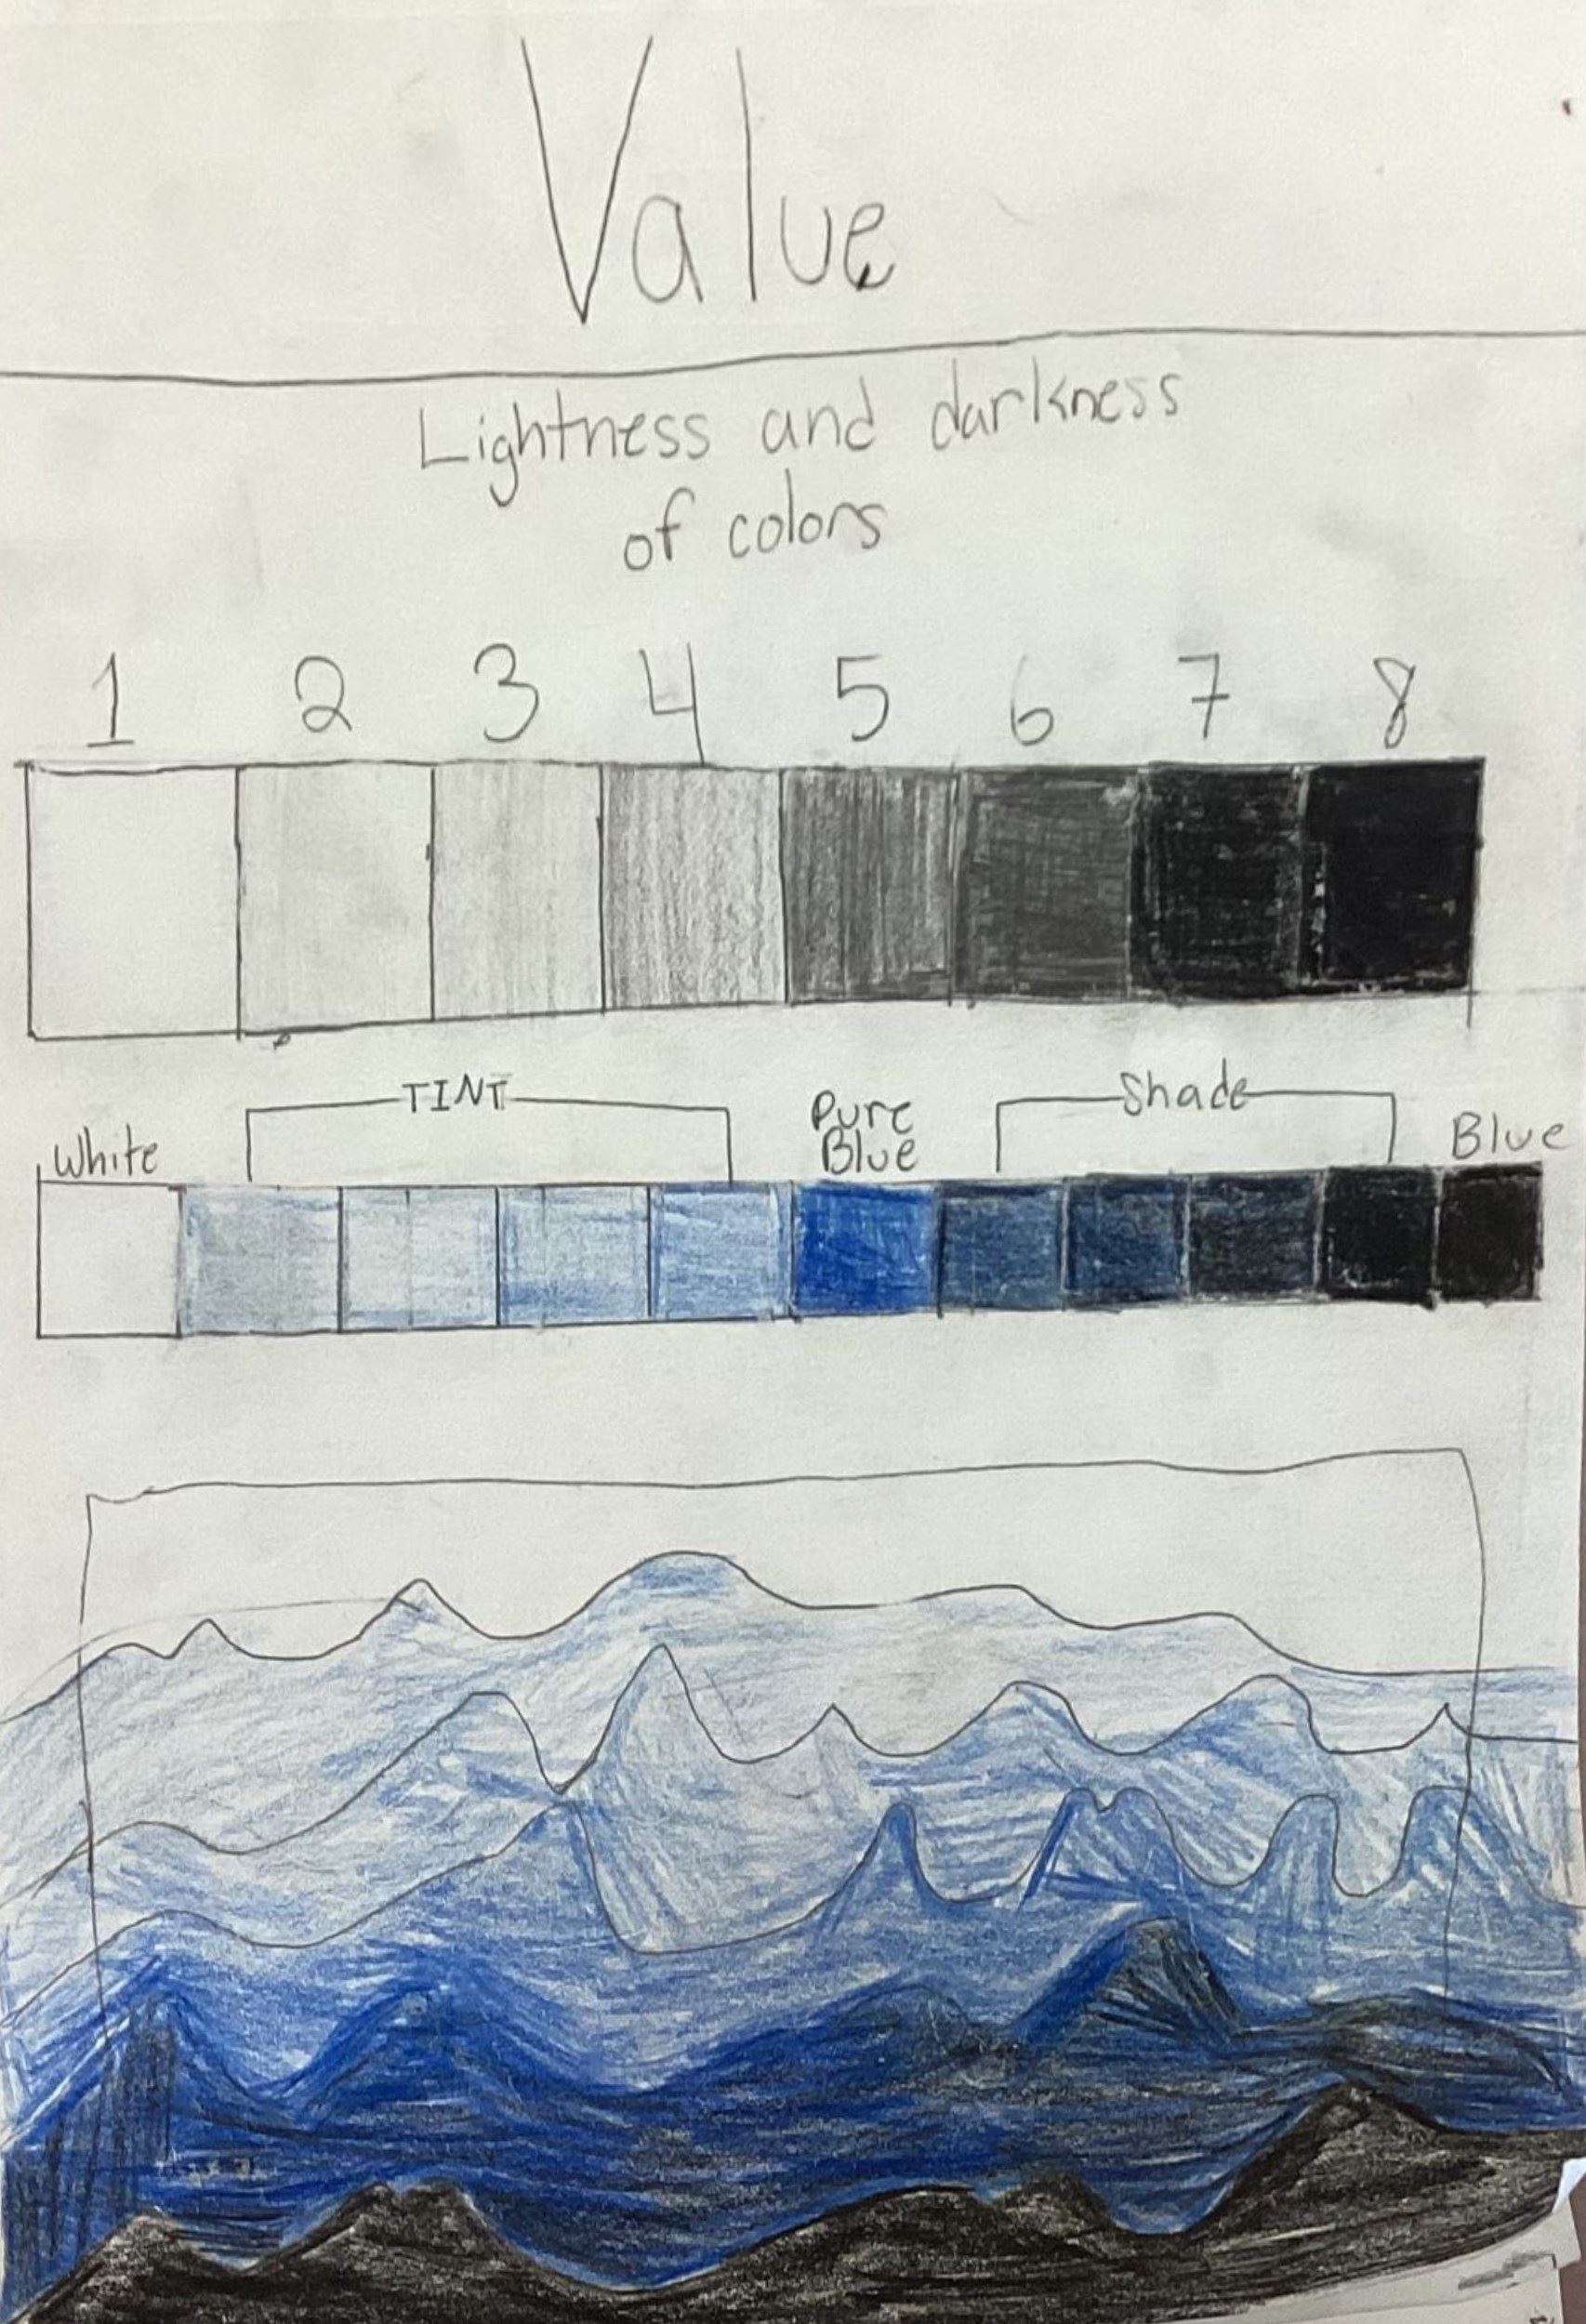 Value
Lightness and darkness
of colors
1 2 3 4 5 6 7 8
TINT
Shade
White
Pure
Blue
Blue